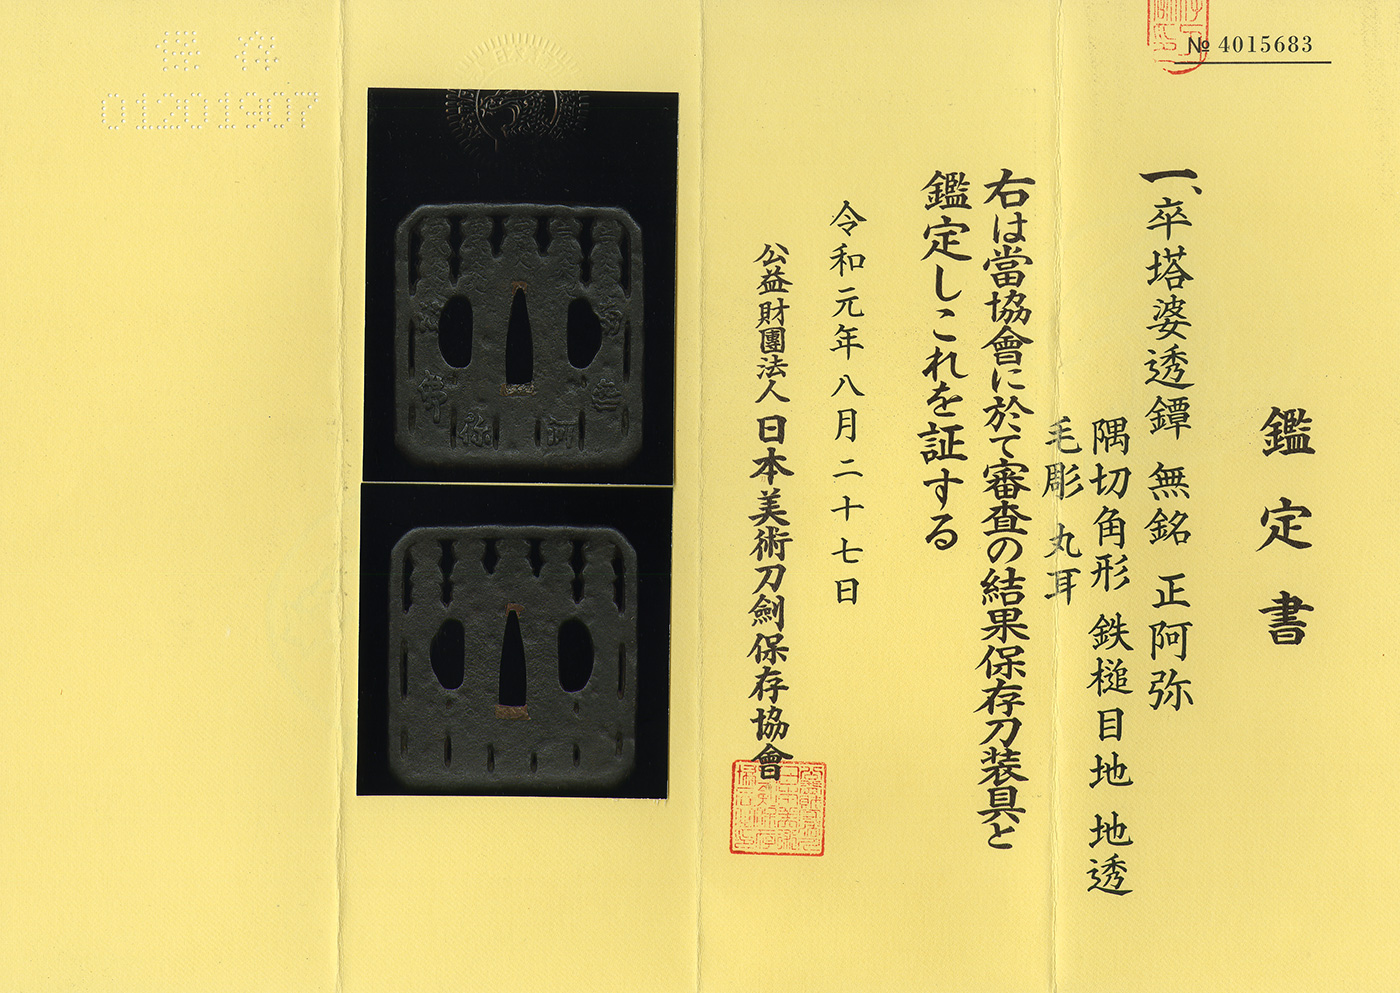 № 4015683
鑑定書
一、卒塔婆透鐔 無銘 正阿弥
隅切角形 鉄槌目地 地透
毛彫 丸耳
右は當協會に於て審査の結果保存刀装具と
鑑定しこれを証する
令和元年八月二十七日
公益財團法人 日本美術刀劍保存協會
保存
01201907